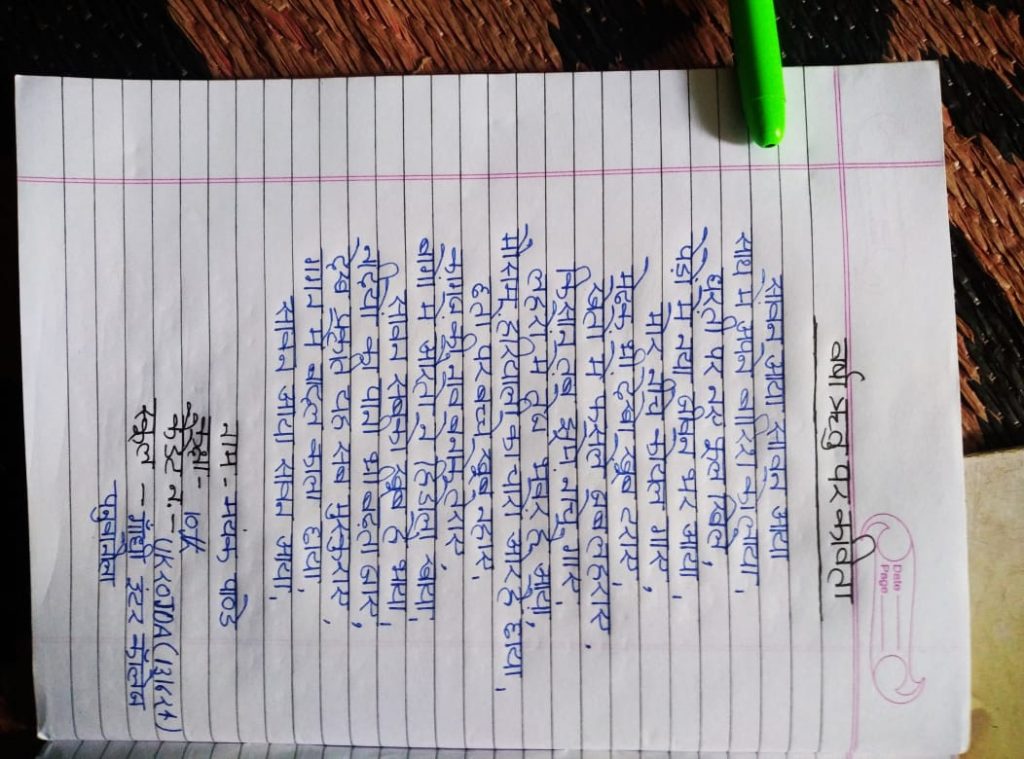 Date
Page
वर्षा ऋतु पर कविता
सावन आया सावन आया
साथ में अपने बारिश को लाया,
धरती पर नए फूल खिले,
पेड़ों में नया जीवन भर आया,
मोर नाचे कोयल गाए,
मेढ़क भी देखो खूब टरराए,
खेतों में फसल जब लहराए
किसान तब झूम नाचे गाए,
लहरों में हवा भर है आया,
मौसम हरियाली का चारो ओर है छाया,
छतों पर बच्चे खूब नहाए,
कागज की नाव बनाके तैराए,
बागों में औरतों ने हिंडोला खाया,
सावन सबको खूब है भाया,
नदियों का पानी भी बढ़ता जाए,
देख प्रकृति यह सब मुस्कुराए,
गगन में बादल काला छाया,
सावन आया सावन आया,
नाम - मयंक पाठे
कक्षा - 10th
कैडेट न. -
UK20JDA(136
स्कूल - गाँधी इंटर कॉलेज
पनुवानौला